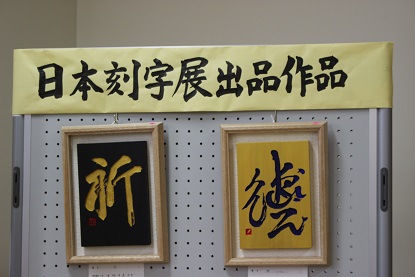 日本刻字展出品作品
祈